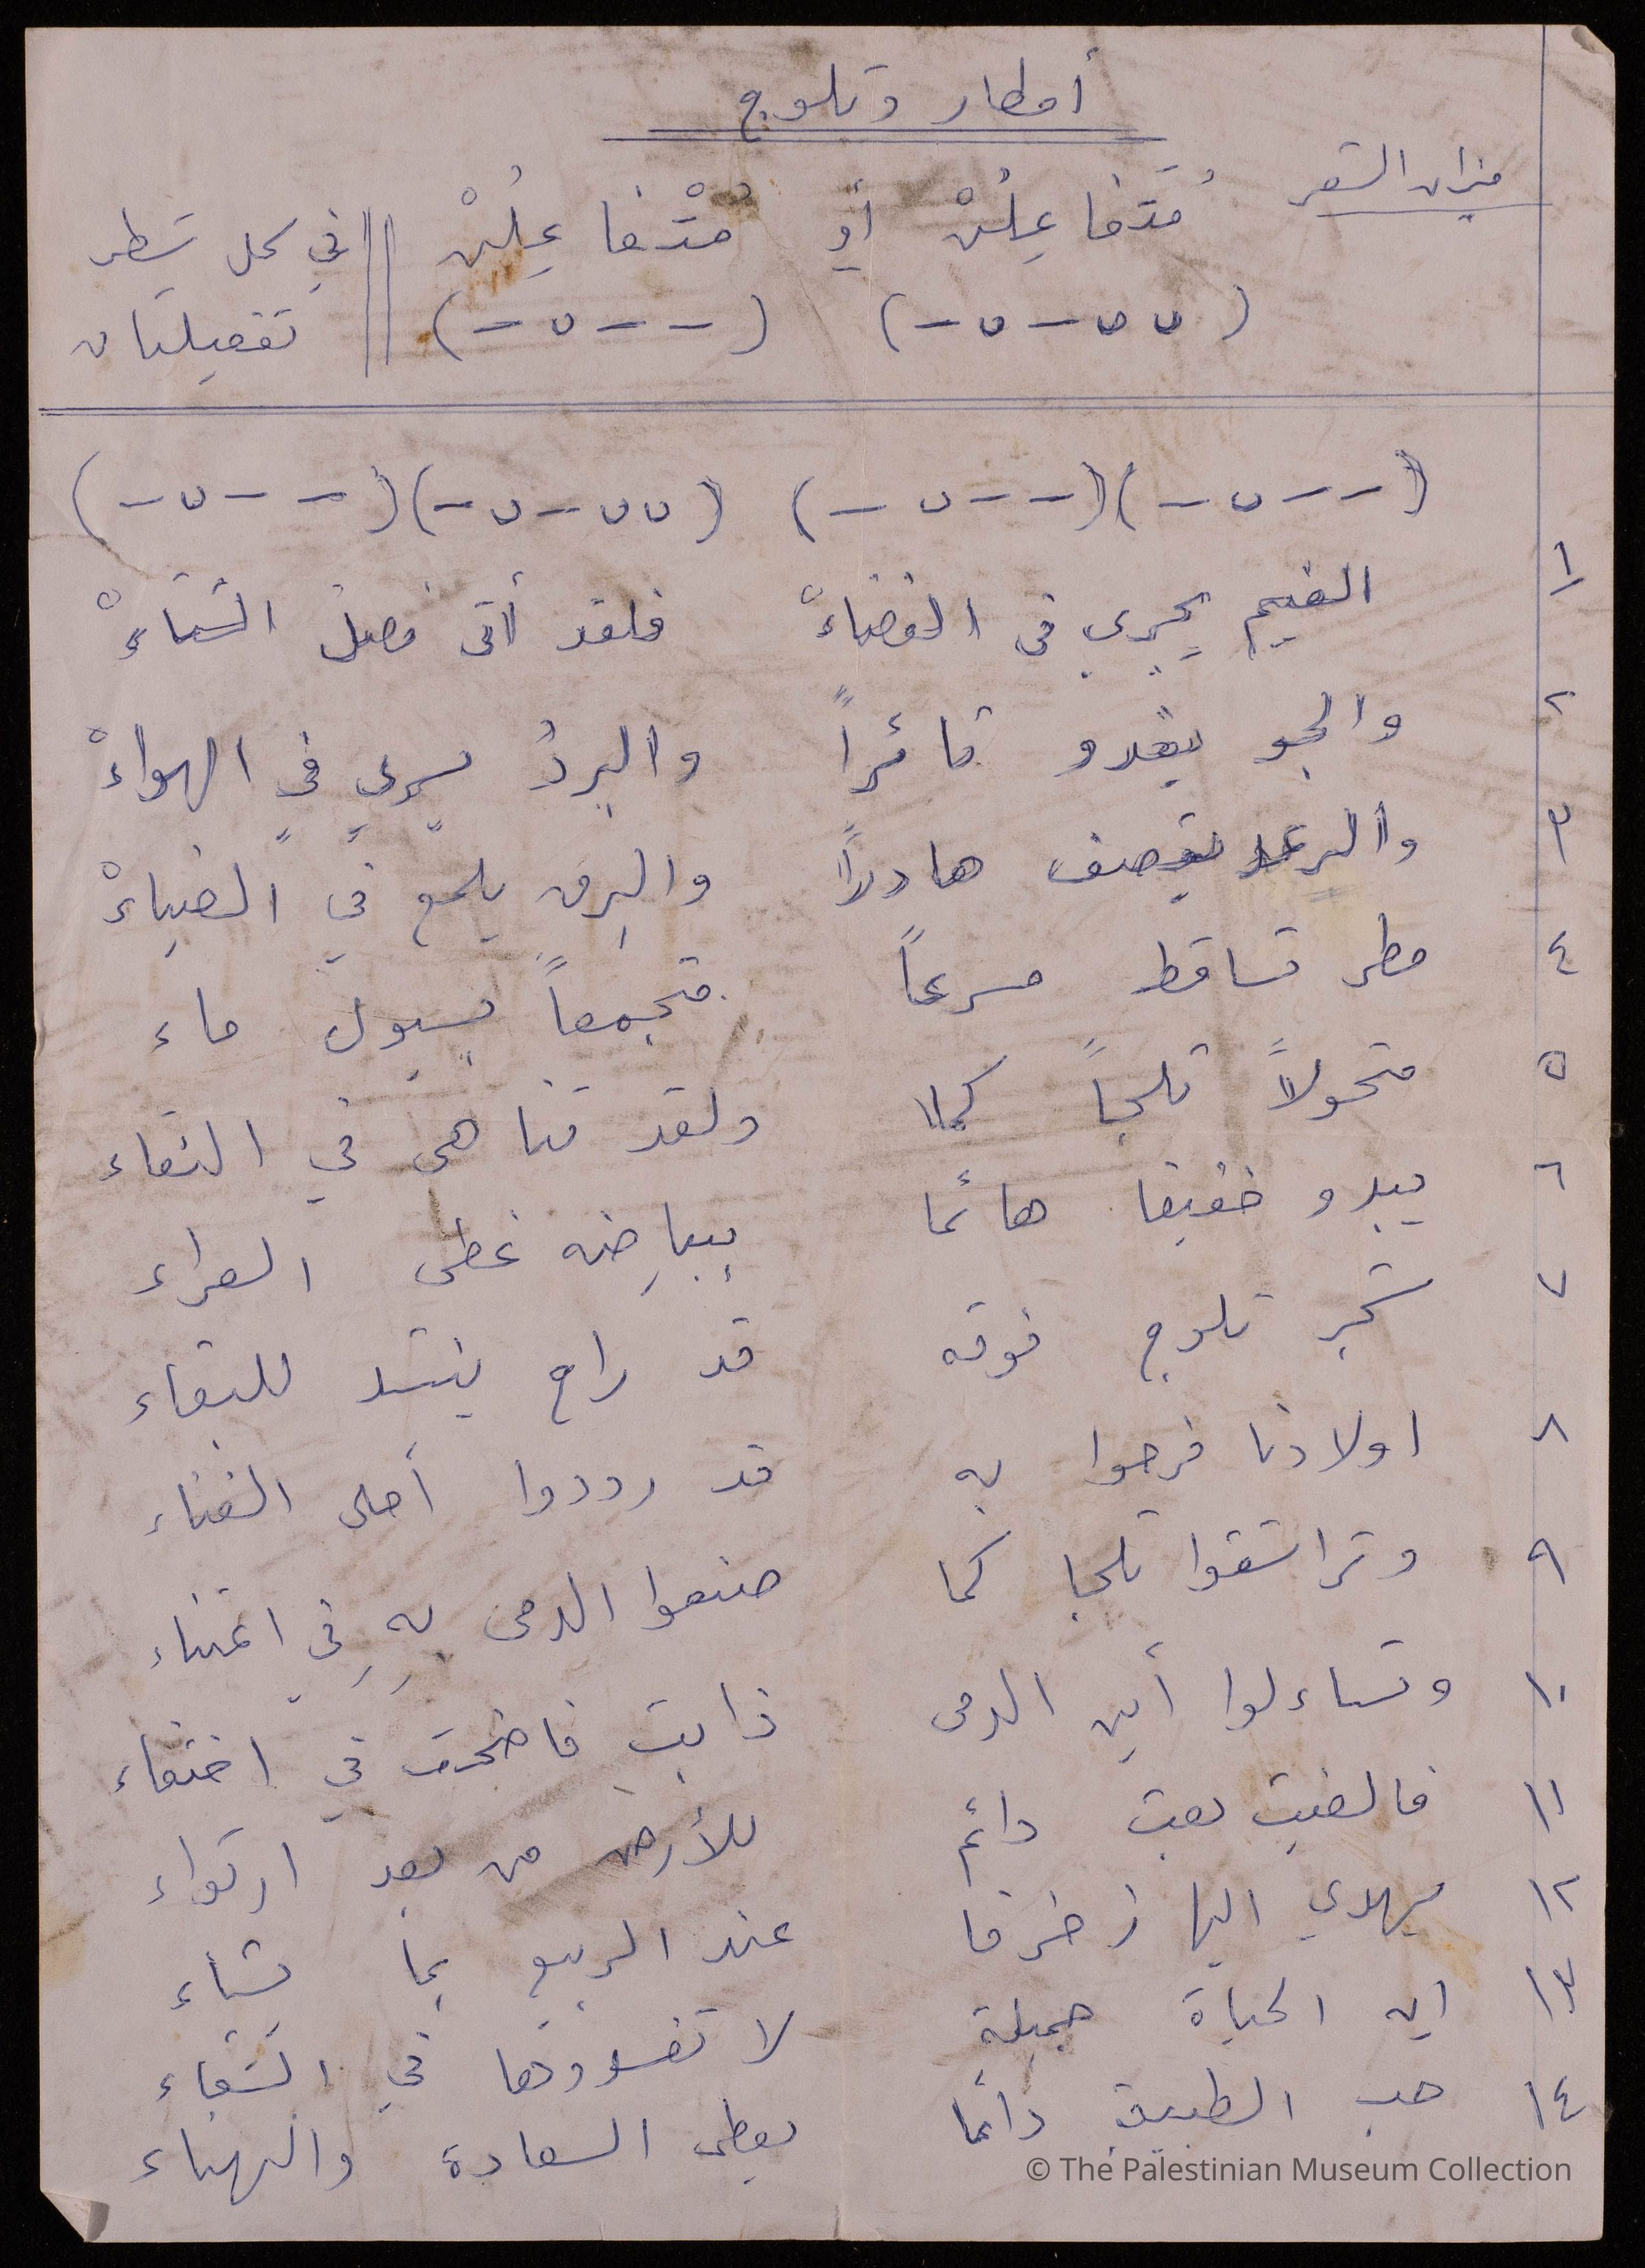 أمطار وثلوج
ميزان الشعر
مُتَفاعِلُنْ أو مُتْفاعِلُنْ || في كل شطر
(ں ں – ں –) (– – ں –) || تفعيلتان
(– – ں –)(– – ں –) (ں ں – ں –)(– – ں –)
١ الغيم يجري في الفضاءْ فلقد أتى فصلُ الشتاءْ
٢ والجو يغدو ثائراً والبردُ يسري في الهواءْ
٣ والرعد يقصف هادراً والبرق يلمع في الضياءْ
٤ مطر تساقط مسرعاً متجمعاً بسيول ماء
٥ متحولاً ثلجاً كملا ولقد تناهى في النقاء
٦ يبدو خفيفا هائما ببياضِه غطى العراء
٧ شجر ثلوج فوقه قد راح ينشد للبقاء
٨ اولادنا فرحوا به قد رددوا أحلى الغناء
٩ وتراشقوا ثلجا كما صنعوا الدمى بهِ في اعتناء
١٠ وتساءلوا أين الدمى ذابت فاضحت في اختفاء
١١ فالغيث بعث دائم للأرض من بعد ارتواء
١٢ يهدي اليها زخرفا عند الربيع بما يشاء
١٣ ان الحياة جميلة لا تفسدوها في الشقاء
١٤ حب الطبيعة دائما يعطى السعادة والهناء
© The Palestinian Museum Collection